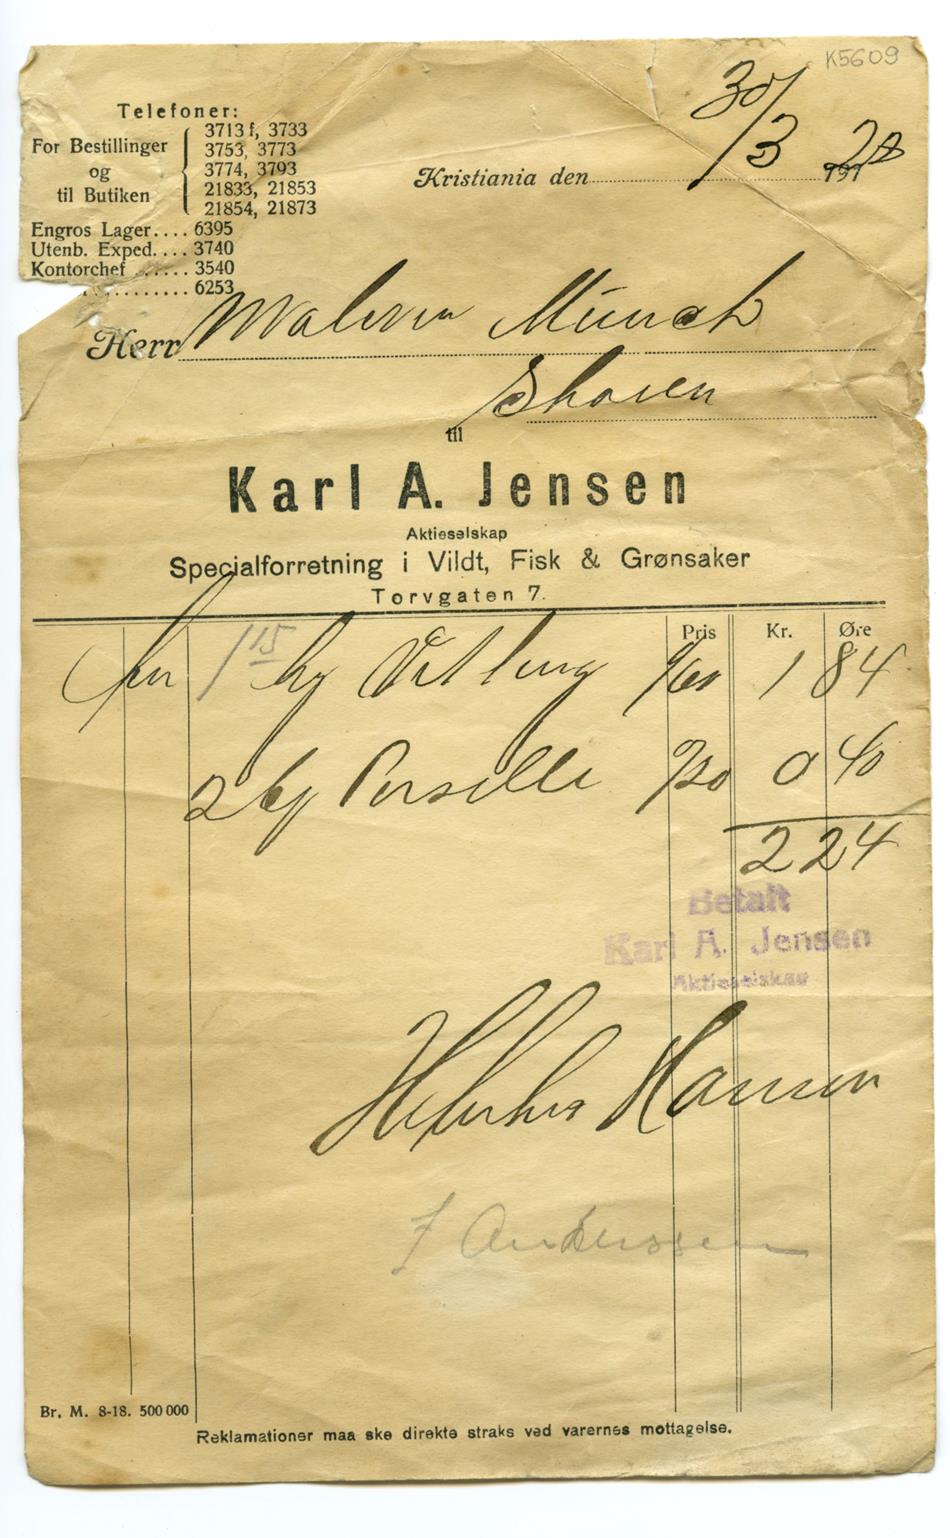 K5609
Telefoner:
For Bestillinger
og
til Butiken
3713 f, 3733
3753, 3773
3774, 3793
21833, 21853
21854, 21873
Engros Lager.... 6395
Utenb. Exped.... 3740
Kontorchef ...... 3540
.......... 6253
Kristiania den 30/3 191 20
Herr Maleren Münch
Skøien
til
Karl A. Jensen
Aktieselskap
Specialforretning i Vildt, Fisk & Grønsaker
Torvgaten 7.
Pris Kr. Øre
1 15 kg Vitling 1/60 1 84
2 Persille /20 0 40
2 24
Betalt
Karl A. Jensen
Aktieselskap
Hansen
J Anderssen
Br. M. 8-18. 500 000
Reklamationer maa ske direkte straks ved varernes mottagelse.